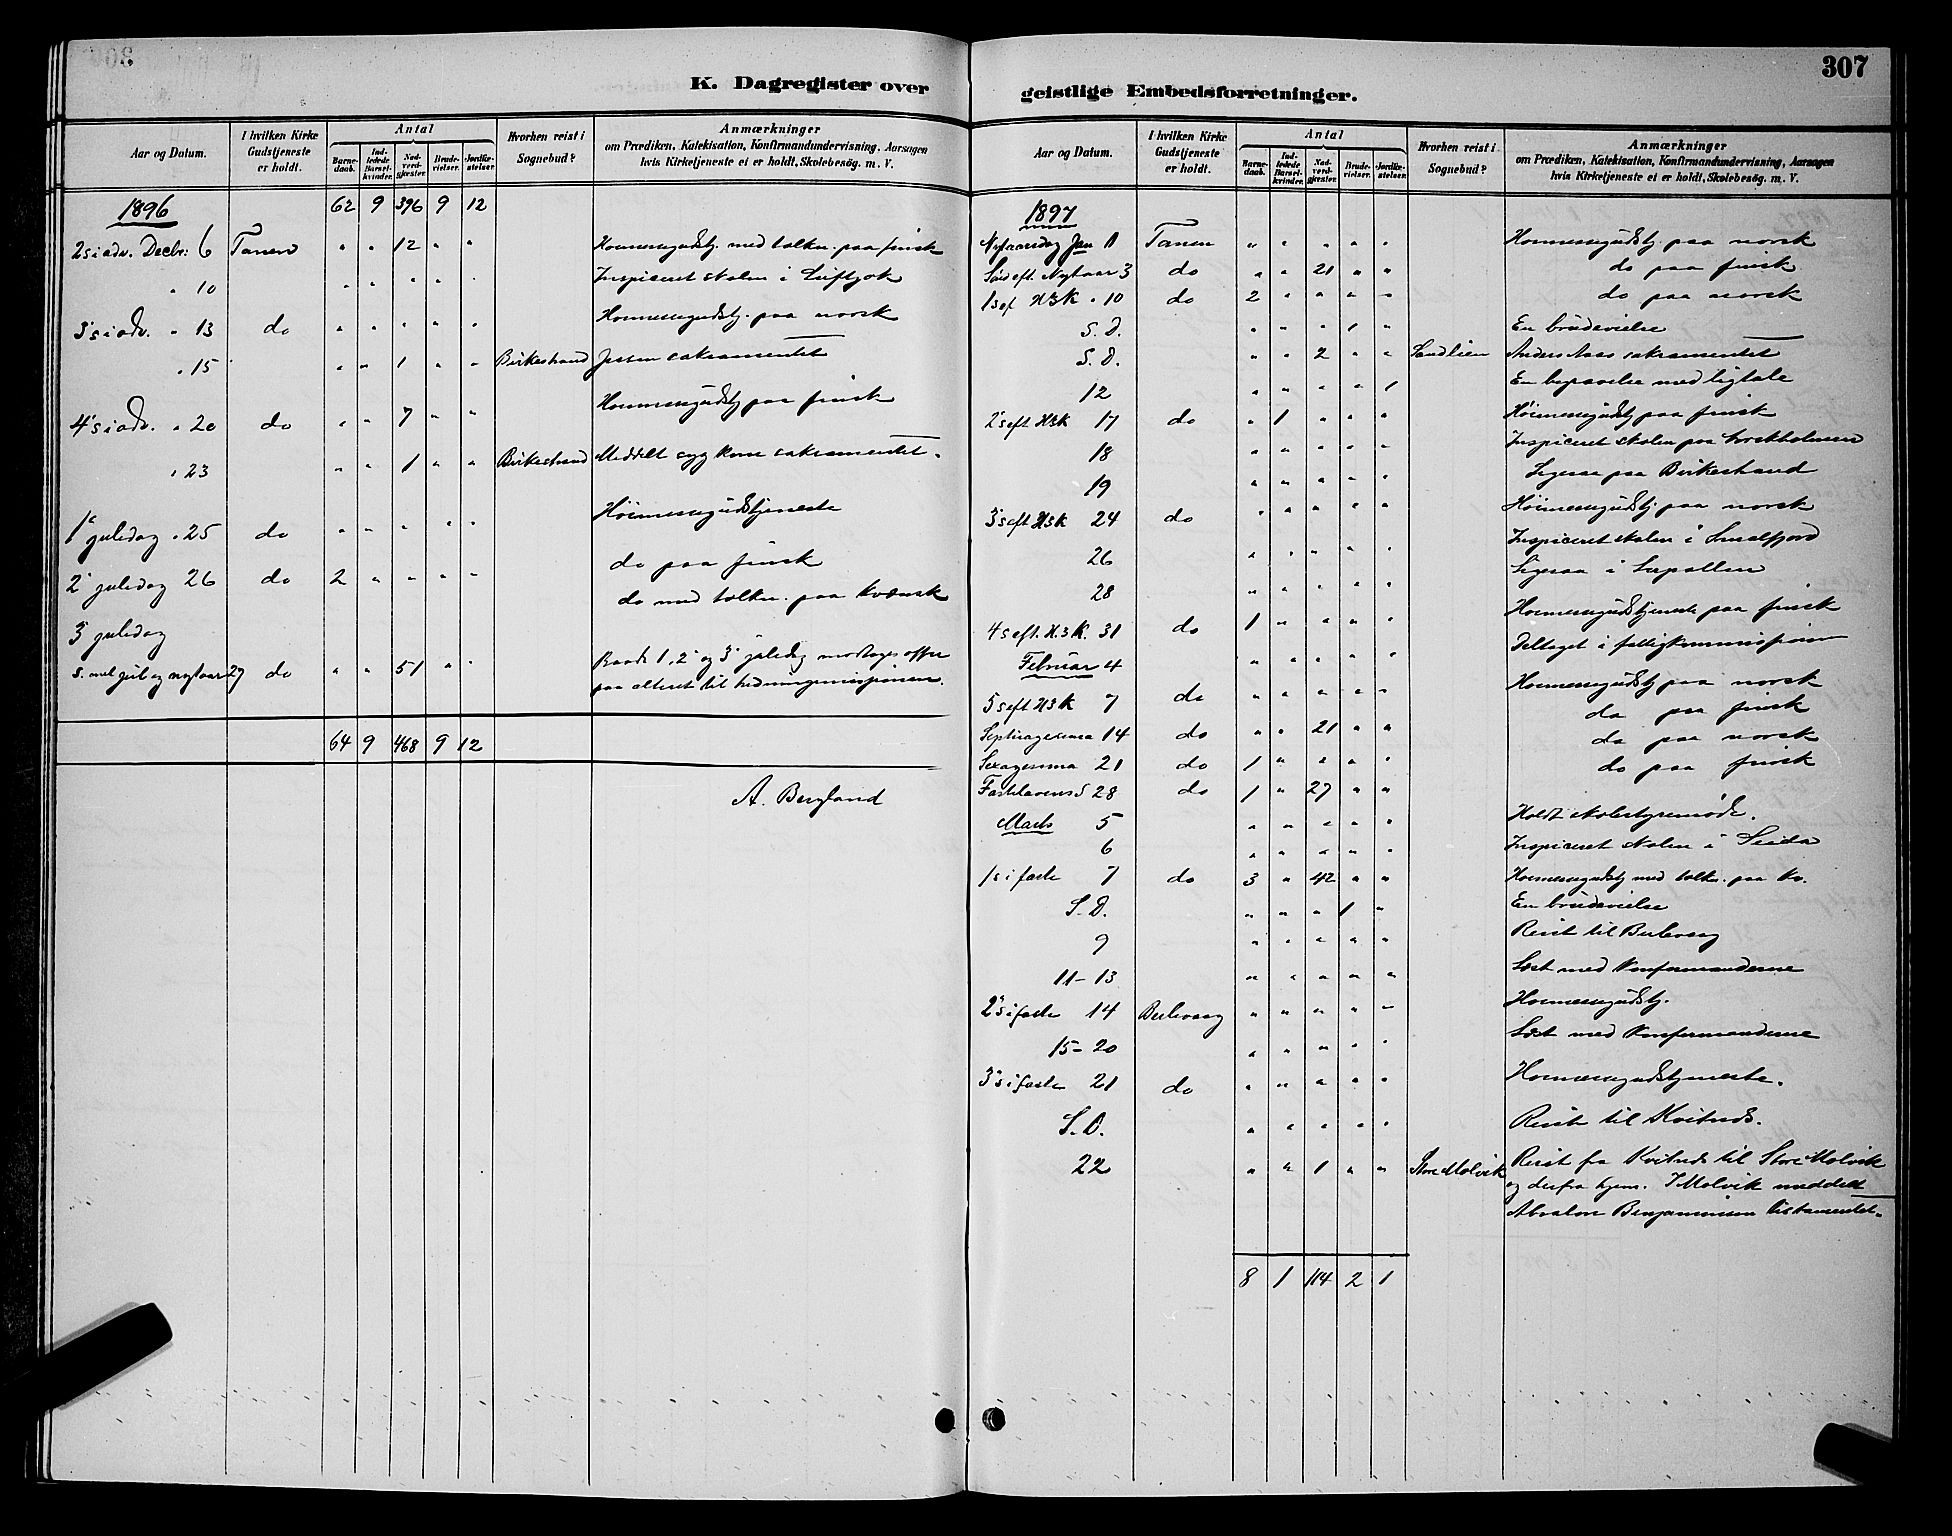 307
K. Dagregister over
geistlige Embedsforretninger.
Aar og Datum.
I hvilken Kirke Gudstjeneste er holdt.
Antal
Barnedaab.
Indledede Barselkvinder.
Nadverdgjester.
Brudevielser.
Jordfæstelser.
Hvorhen reist i Sognebud?
Anmærkninger
om Prædiken, Katekisation, Konfirmandundervisning, Aarsagen
hvis Kirketjeneste ei er holdt, Skolebesøg. m. V.
1896 62 9 396 9 12
2 s i adv. Decbr: 6 Tanen " " 12 " " Høimessegudstj. med tolkn. paa finsk
" 10 " " " " " Inspiceret skolen i Luftjok
3' s i adv. " 13 do " " " " " Høimessegudstj. paa norsk
" 15 " " 1 " " Birkestrand Jessen sakramentet
4' s i adv. " 20 do " " 7 " " Høimessegudstj paa finsk
" 23 " " 1 " " Birkestrand Meddelt syg kone sakramentet.
1' juledag " 25 do " " " " " Høimessegudstjeneste
2' juledag 26 do 2 " " " " do paa finsk
do med tolkn. paa kvænsk
3' juledag
S. mel jul og nytaar 27 do " " 51 " " Baade 1, 2' og 3' juledag modtages offer
paa alteret til hedningemissionen.
64 9 468 9 12
A. Bergland
Aar og Datum.
I hvilken Kirke Gudstjeneste er holdt.
Antal
Barnedaab.
Indledede Barselkvinder.
Nadverdgjester.
Brudevielser.
Jordfæstelser.
Hvorhen reist i Sognebud?
Anmærkninger
om Prædiken, Katekisation, Konfirmandundervisning, Aarsagen
hvis Kirketjeneste ei er holdt, Skolebesøg. m. V.
1897
Nytaarsdag Jan 1 Tanen " " " " " Høimessegudstj. paa norsk
Sønd eft. Nytaar 3 do " " 21 " " do paa finsk
1 s ef H3K " 10 do 2 " " " " do paa norsk
S. D. " " " 1 " En brudevielse
S. D. " " 2 " " Sandlien Anders Aas sakramentet
12 " " " " 1 En begravelse med ligtale
2' s eft H3K 17 do " 1 " " " Høimessegudstj paa finsk
18 " " " " " Inspiceret skolen paa
19 " " " " " Ligesaa paa Birkestrand
3' s eft H3K 24 do " " " " " Høimessegudstj. paa norsk
26 " " " " " Inspiceret skolen i Smalfjord
28 " " " " " Ligesaa i
4 s eft. H.3.K. 31 do 1 " " " " Høimessegudstjeneste paa finsk
Februar 4 " " " " " Deltaget i fattigkommissionen
5 s eft H3K 7 do " " " " " Høimessegudstj paa norsk
Septuagesima 14 do " " 21 " " do paa finsk
Sexagesima 21 do 1 " " " " do paa norsk
Fastelavens S 28 do 1 " 27 " " do paa finsk
Marts 5 " " " " " Holdt skolestyremøde.
6 " " " " " Inspiceret skolen i Seida
1 s i faste 7 do 3 " 42 " " Høimessegudstj med tolkn. paa kv.
S. D. " " " 1 " En brudevielse
9 " " " " " Reist til Berlevaag
11-13 " " " " " Læst med konfirmanderne
2' s i faste 14 Berlevaag " " " " " Høimessegudstj.
15-20 " " " " " Læst med konfirmanderne
3' s i faste 21 do " " " " " Høimessegudstjeneste.
S. D. " " " " " Reist til Kvitnes.
22 " " 1 " " Store Molvik Reist fra Kvitnes til Store Molvik
og derfra hjem. I Molvik meddelt
Absalon Benjaminsen
8 1 114 2 1